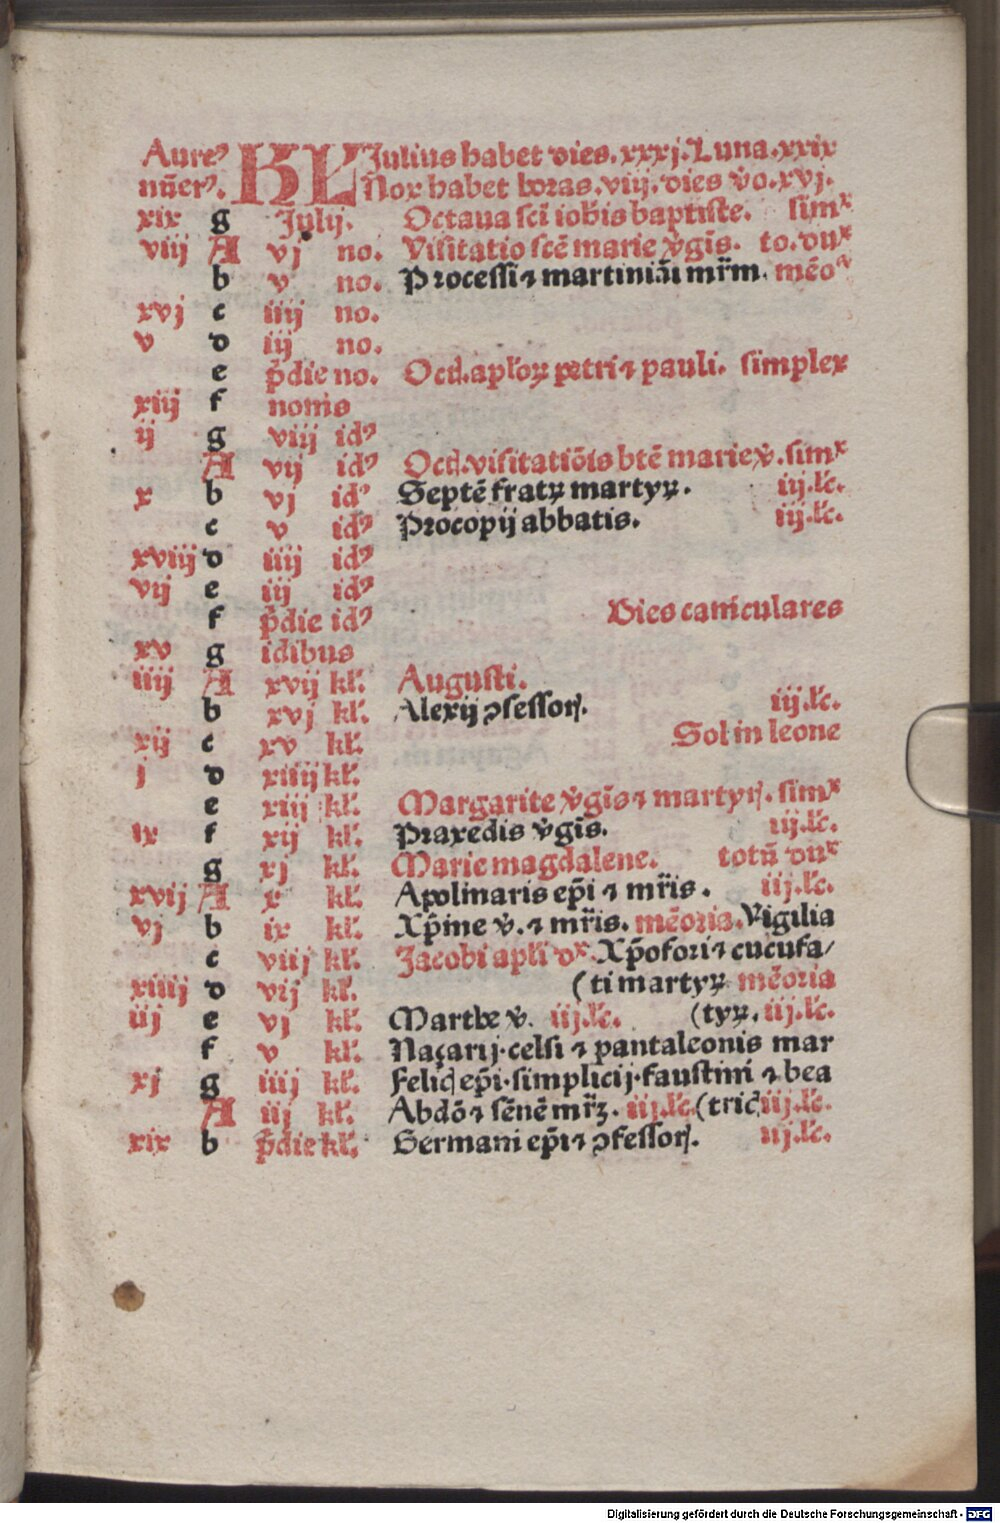 Aureꝰ KL Julius habet dies.xxxj.Luna.xxix
nūerꝰ. Nox habet horas.viij.dies v̄o.xvj.
xix g Julij. Octaua sci̅ ioh̅is baptiste. simˣ
viij A vj no. Visitatio sce̅ marie v̄gi̅s. to.duˣ
b v no. Processi ⁊ martiniāi mr̅m. me̅oᵃ
xvj c iiij no.
v d iij no.
e p̄die no. Octꝭ.apl̅oꝝ petri ⁊ pauli. simplex
xiij f nonis
ij g viij idꝰ
A vij idꝰ Octꝭ.visitatio̅is bte̅ marie v̄. simˣ
x b vj idꝰ Septe̅ fratꝝ martyꝝ. iij.lc̅.
c v idꝰ Procopij abbatis. iij.lc̅.
xviij d iiij idꝰ
vij e iij idꝰ
f p̄die idꝰ Dies caniculares
xv g idibus
iiij A xvij kl̅. Augusti.
b xvj kl̅. Alexij ꝯfessorꝭ. iij.lc̅.
xij c xv kl̅. Sol in leone
j d xiiij kl̅.
e xiij kl̅. Margarite v̄gi̅s ⁊ martyrꝭ. simˣ
ix f xij kl̅. Praxedis v̄gi̅s. iij.lc̅.
g xj kl̅. Marie magdalene. totu̅ duˣ
xvij A x kl̅. Apolinaris ep̅i ⁊ mr̅is. iij.lc̅.
vj b ix kl̅. Xp̅ine v̄. ⁊ mr̅is. me̅oria. Vigilia
c viij kl̅. Jacobi apl̅i dˣ. Xp̅ofori ⁊ cucufa/
xiiij d vij kl̅. (ti martyꝝ me̅oria
iij e vj kl̅. Marthe v̄. iij.lc̅. (tyꝝ. iij.lc̅.
f v kl̅. Naçarij.celsi ⁊ pantaleonis mar
xj g iiij kl̅. Felicꝭ ep̅i.simplicij.faustini ⁊ bea
A iij kl̅. Abdo̅ ⁊ se̅ne̅ mr̅ꝫ. iij.lc̅ (tricꝭ iij.lc̅.
xix b p̄die kl̅. Germani ep̅i ⁊ ꝯfessorꝭ. iij.lc̅.
Digitalisierung gefördert durch die Deutsche Forschungsgemeinschaft - DFG